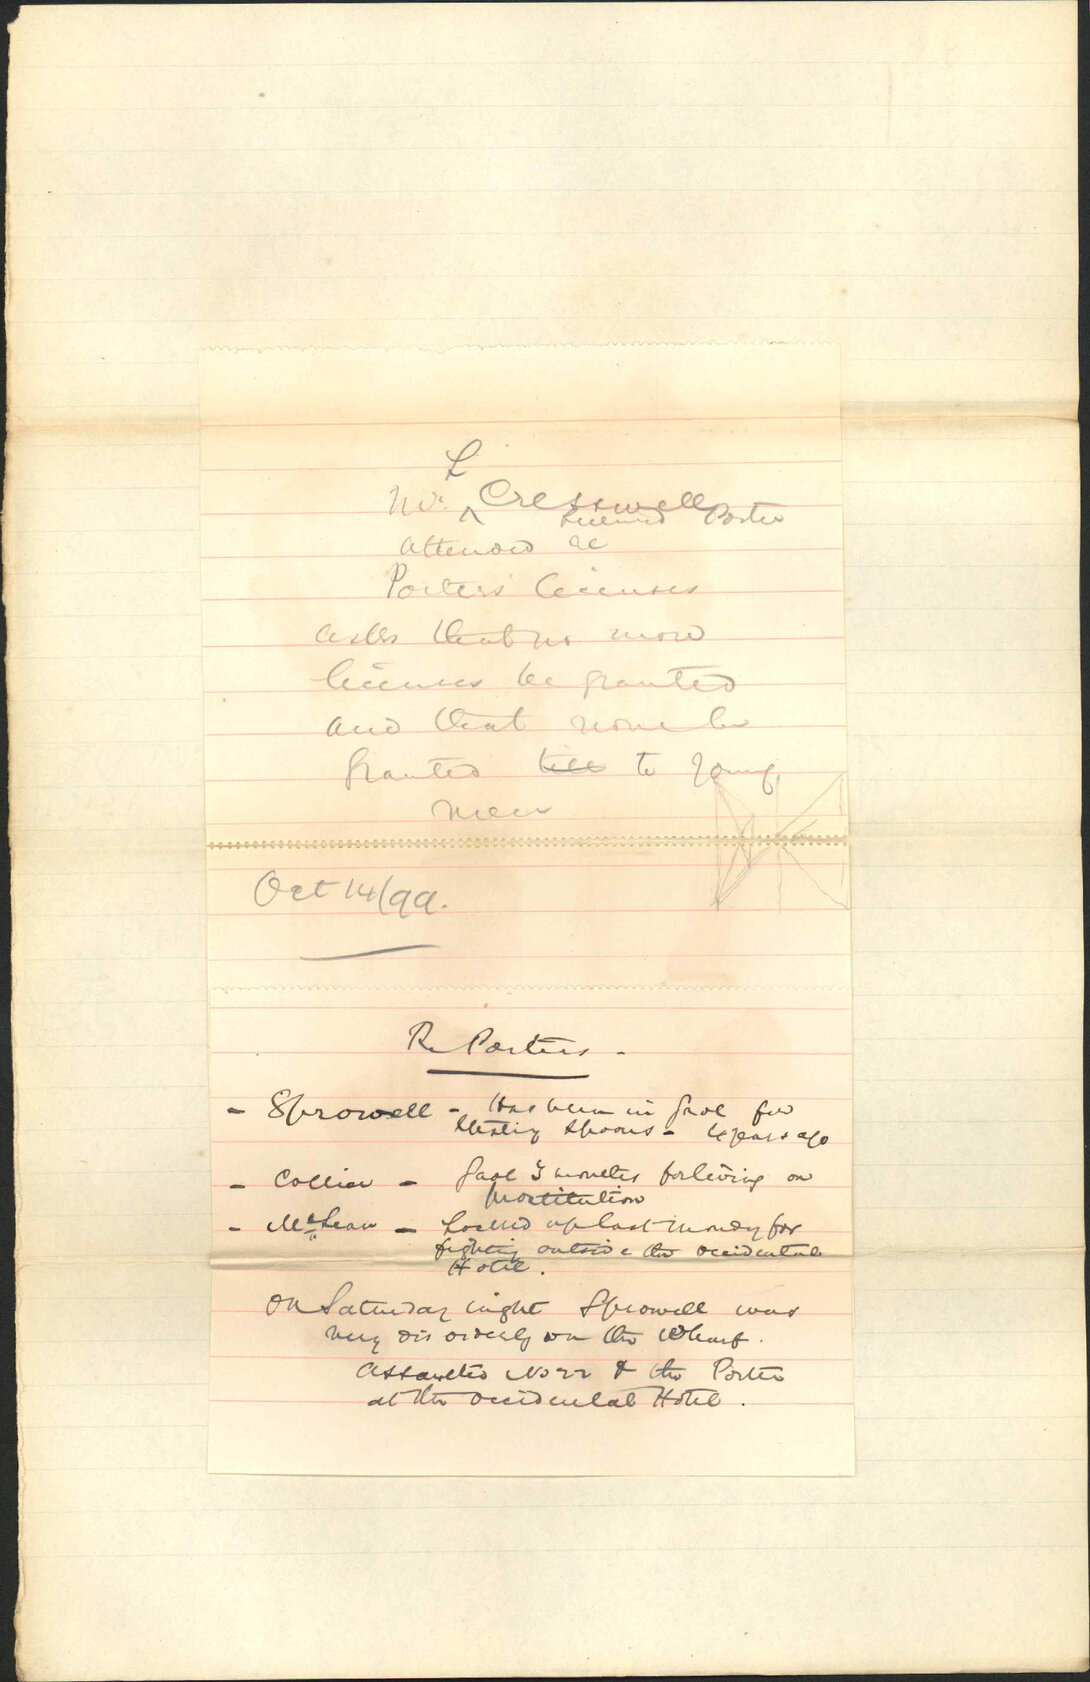 L
Mr ^ Cresswell
Licensed Porter
attended re
Porters' licenses
asks that no more
licenses be granted
and that none be
granted till to young
men
Oct 14/99.
Re Porters -
- Sprowell - Has been in gaol for
stealing spoons - 4 years ago
- Collier - gaol 3 months for living on
prostitution
- McLean - Locked up last Monday for
fighting outside the Occidental
Hotel.
On Saturday night Sprowell was
very disorderly on the Wharf.
Assaulted No 22 & the Porter
at the Occidental Hotel.